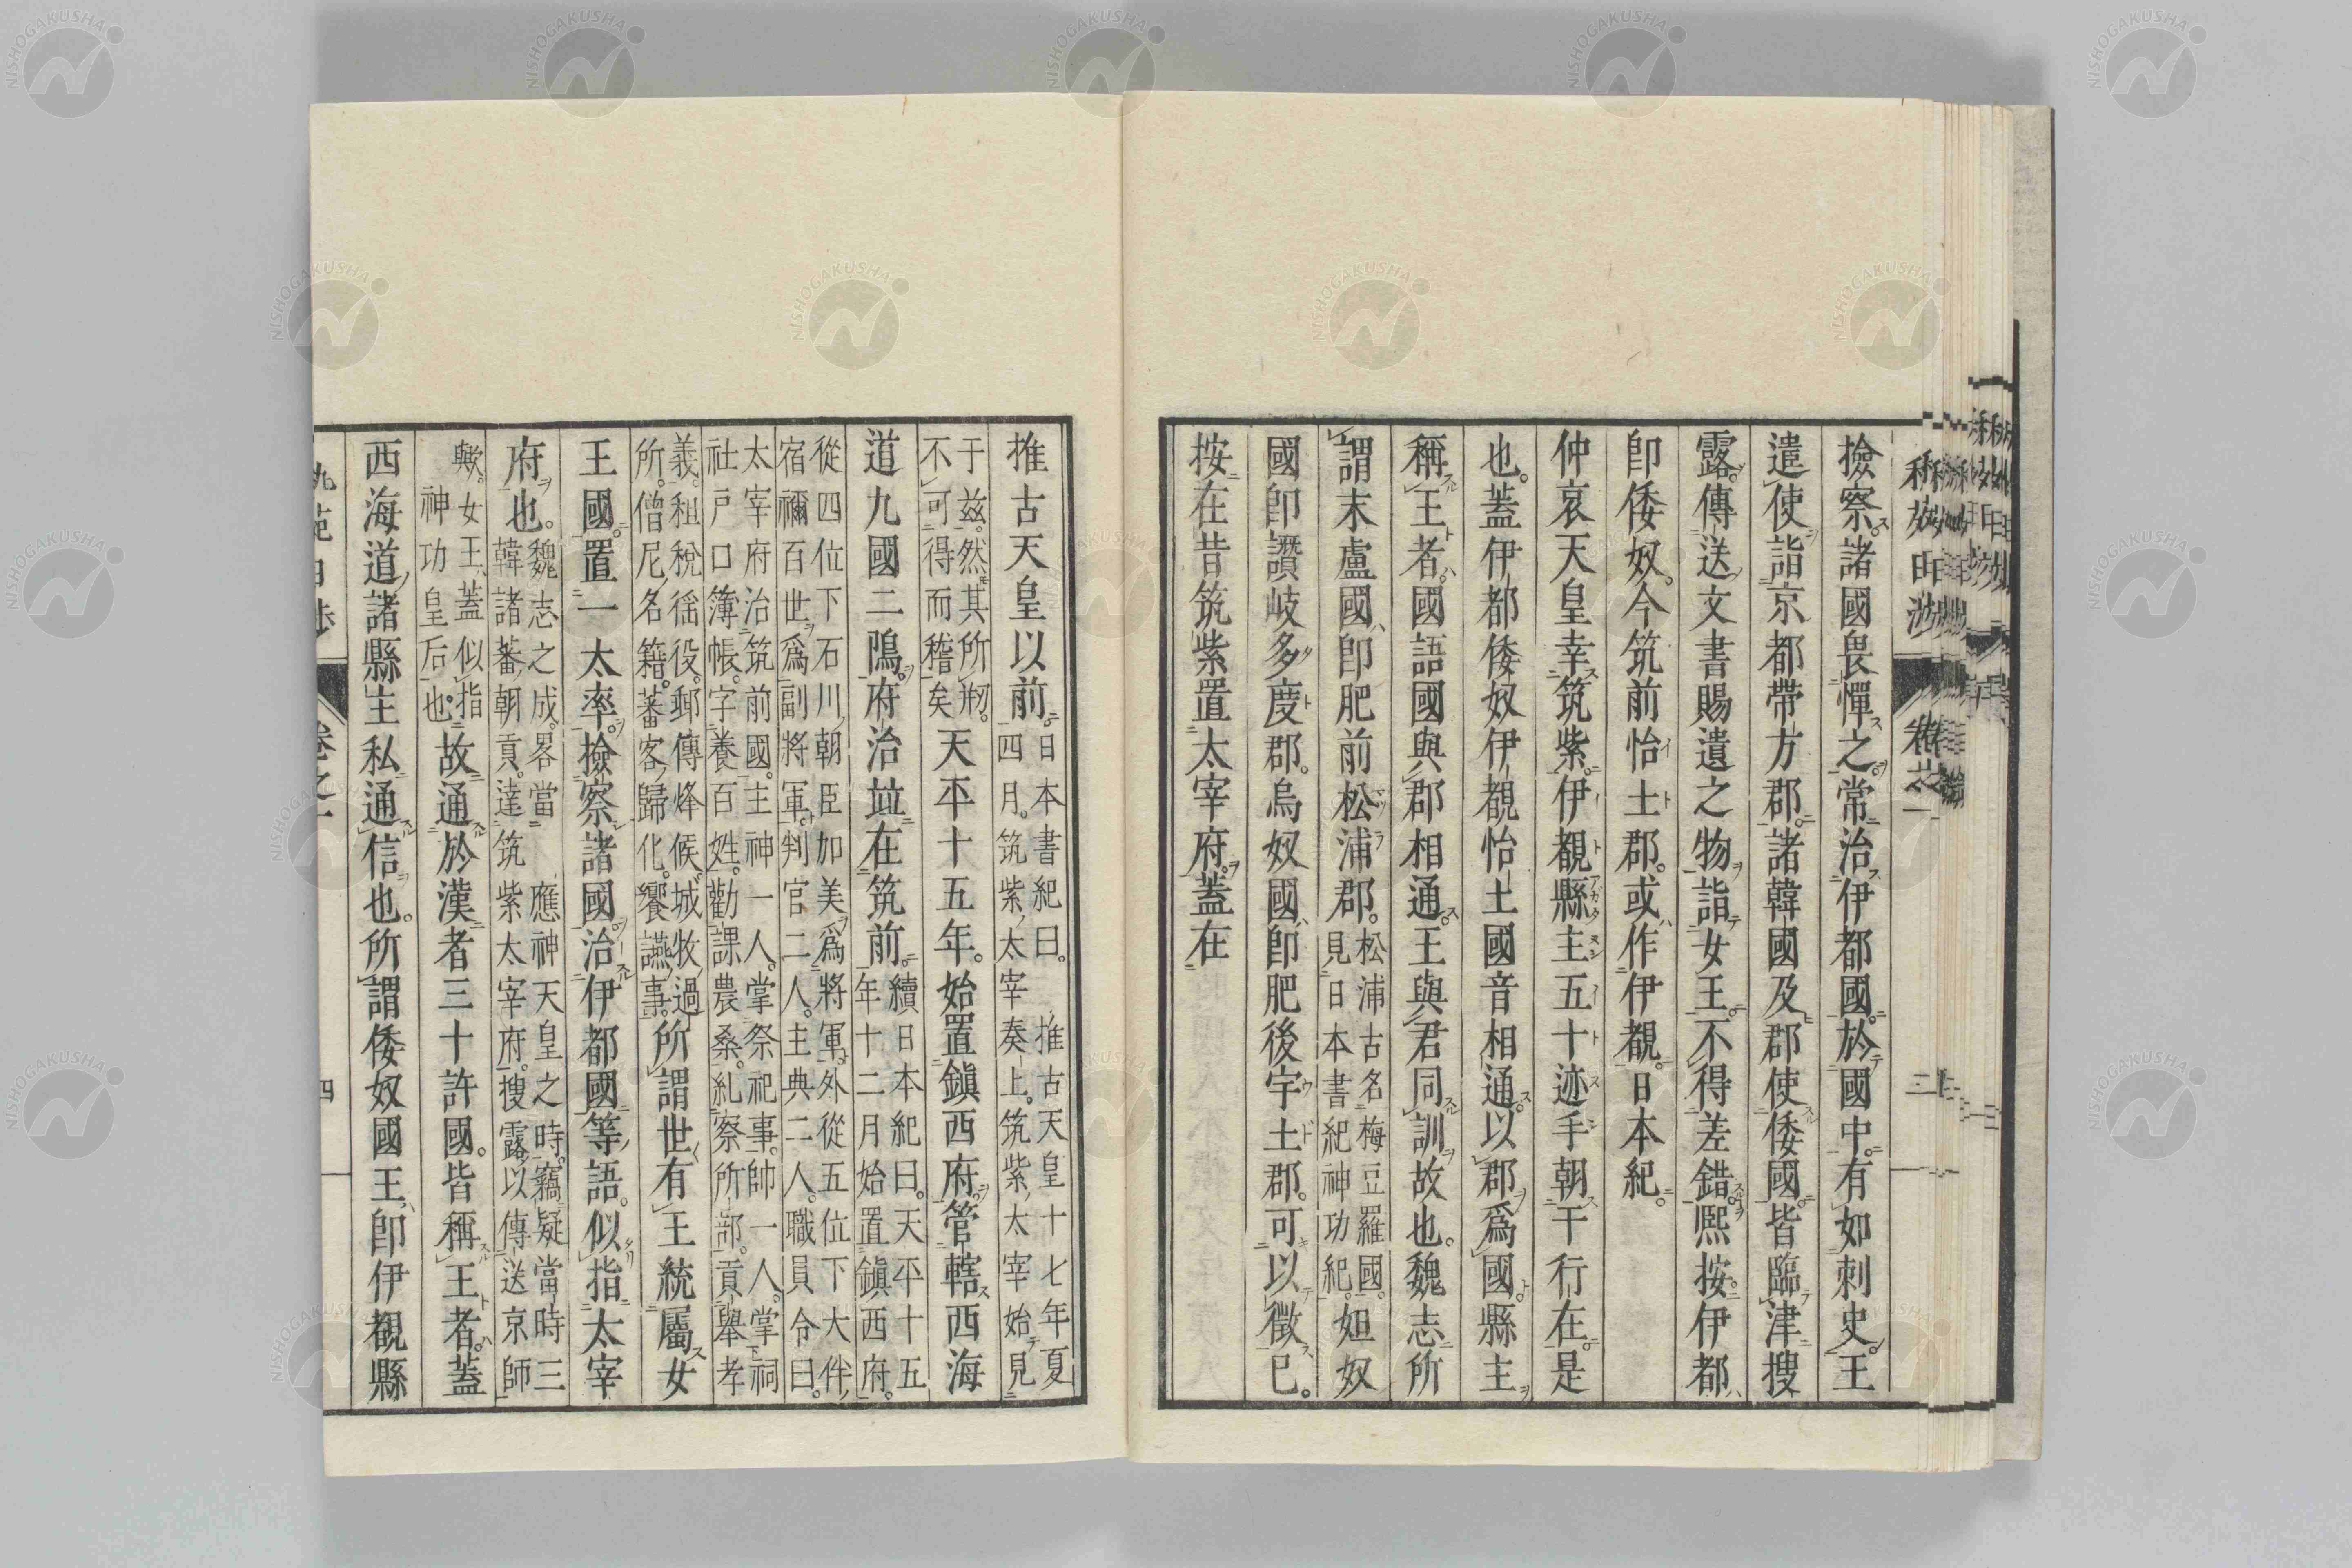 撿察諸國畏憚之常治伊都國於國中有如刺史王
遣使詣京都帶方郡諸韓國及郡使倭國皆臨津搜
露傳送文書賜遺之物詣女王不得差錯熙按伊都
卽倭奴今筑前怡土郡或作伊覩日本紀
仲哀天皇幸筑紫伊覩縣主五十迹手朝于行在是
也蓋伊都倭奴伊覩怡土國音相通以郡爲國縣主
稱王者國語國與郡相通王與君同訓故也魏志所
謂末盧國卽肥前松浦郡松浦古名梅豆羅國見日本書紀神功紀如奴
國卽讚岐多度郡烏奴國卽肥後宇土郡可以徵已
按在昔筑紫置太宰府蓋在
推古天皇以前日本書紀曰推古天皇十七年夏四月筑紫太宰奏上筑紫太宰始見
于茲然其所刱不可得而稽矣天平十五年始置鎭西府管轄西海
道九國二隝府治竝在筑前續日本紀曰天平十五年十二月始置鎭西府
從四位下石川朝臣加美爲將軍外從五位下大伴宿禰百世爲副將軍判官二人主典二人職員令曰
太宰府治筑前國主神一人掌祭祀事帥一人掌祠社戸口簿帳字養百姓勸課農桑糺察所部貢舉孝
義租税徭役郵傳烽候城牧過所僧尼名籍蕃客歸化饗讌事所謂世有王統屬女
王國置一太率撿察諸國治伊都國等語似指太宰
府也魏志之成畧當應神天皇之時竊疑當時三韓諸蕃朝貢達筑紫太宰府搜露以傳送京師
歟女王蓋似指神功皇后也故通於漢者三十許國皆稱王者蓋
西海道諸縣主私通信也所謂倭奴國王卽伊覩縣
卷之一
四
NISHOGAKUSHA